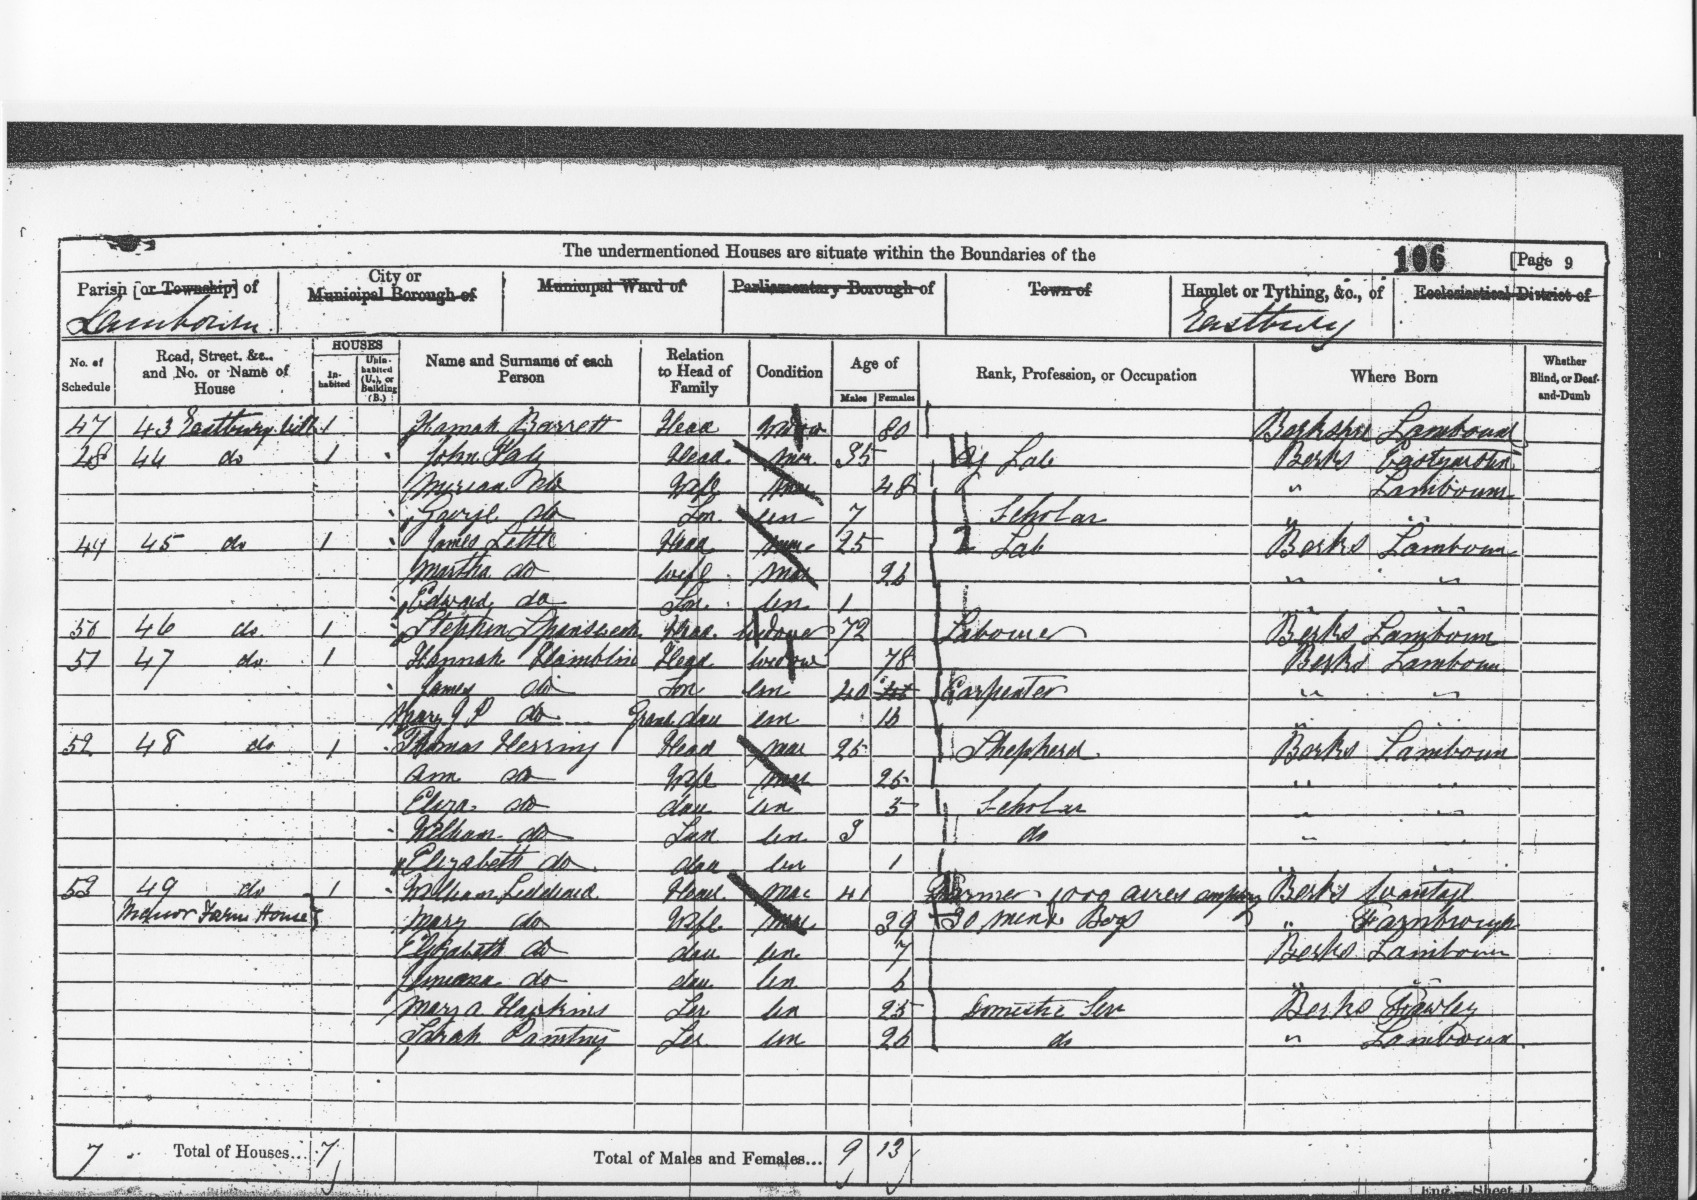 The undermentioned Houses are situate within the Boundaries of the 106 [Page 9
Parish [or Township] of City or Municipal Borough of Municipal Ward of Parliamentary Borough of Town of Hamlet or Tything, &c., of Ecclesiastical District of
Lambourn Eastbury
No. of Schedule Road, Street, &c., and No. or Name of House HOUSES Inhabited Uninhabited (U.), or Building (B.) Name and Surname of each Person Relation to Head of Family Condition Age of Males Females Rank, Profession, or Occupation Where Born Whether Blind, or Deaf-and-Dumb
47 43 Eastbury 1 Hannah Barrett Head Widow 80 Berkshire Lambourn
48 44 do 1 John Head mar 35 Ag Lab Berks
Miriam do Wife mar 48 " Lambourn
George do Son un 7 Scholar " "
49 45 do 1 James Little Head mar 25 Lab Berks Lambourn
Martha do wife mar 26 " "
Edward do Son un 1 " "
50 46 do 1 Stephen Head Widower 72 Labourer Berks Lambourn
51 47 do 1 Hannah Hamblin Head widow 78 Berks Lambourn
James do Son un 40 Carpenter " "
Mary J P do Grand dau un 16 " "
52 48 do 1 Thomas Herring Head mar 25 Shepherd Berks Lambourn
Ann do Wife mar 25 " "
Eliza do dau un 5 Scholar " "
William do Son un 3 do " "
Elizabeth do dau un 1 " "
53 49 do 1 William Head mar 41 Farmer 1000 acres Berks Wantage
Manor Farm House Mary do Wife mar 39 30 men & Boys " Farnbrough
Elizabeth do dau un 7 Berks Lambourn
do dau un 6 " "
Hopkins Ser un 25 Domestic Ser Berks Fawley
Sarah Ser un 26 do " Lambourn
7 Total of Houses... 7 Total of Males and Females... 9 13
Eng.—Sheet D.